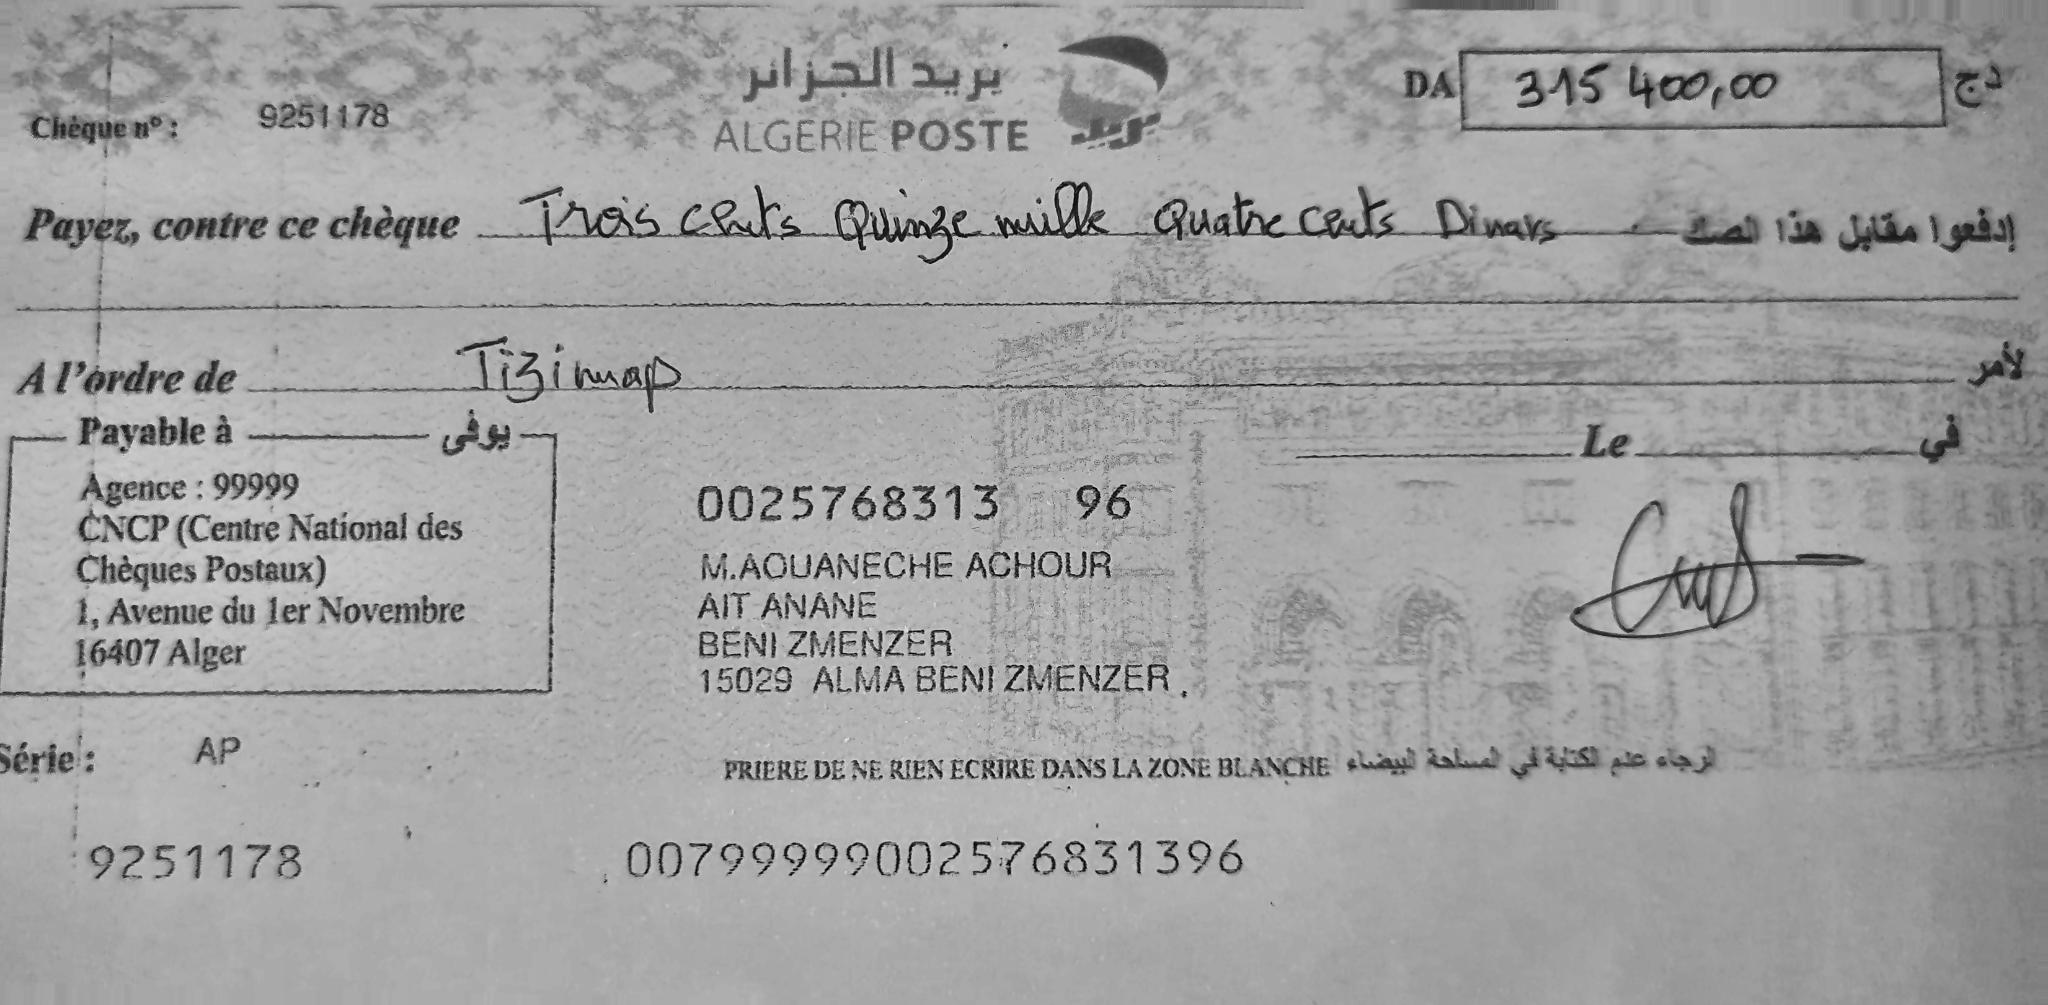 بريد الجزائر
ALGERIE POSTE
بريد
DA 315 400,00 دج
Chèque n° : 9251178
Payez, contre ce chèque Trois cents Quinze mille Quatre cents Dinars إدفعوا مقابل هذا الصك
A l'ordre de Tizimap لأمر
Payable à يوفى
Le في
Agence : 99999
CNCP (Centre National des
Chèques Postaux)
1, Avenue du 1er Novembre
16407 Alger
0025768313 96
M.AOUANECHE ACHOUR
AIT ANANE
BENI ZMENZER
15029 ALMA BENI ZMENZER
Série : AP
PRIERE DE NE RIEN ECRIRE DANS LA ZONE BLANCHE الرجاء عدم الكتابة في المساحة البيضاء
9251178 00799999002576831396